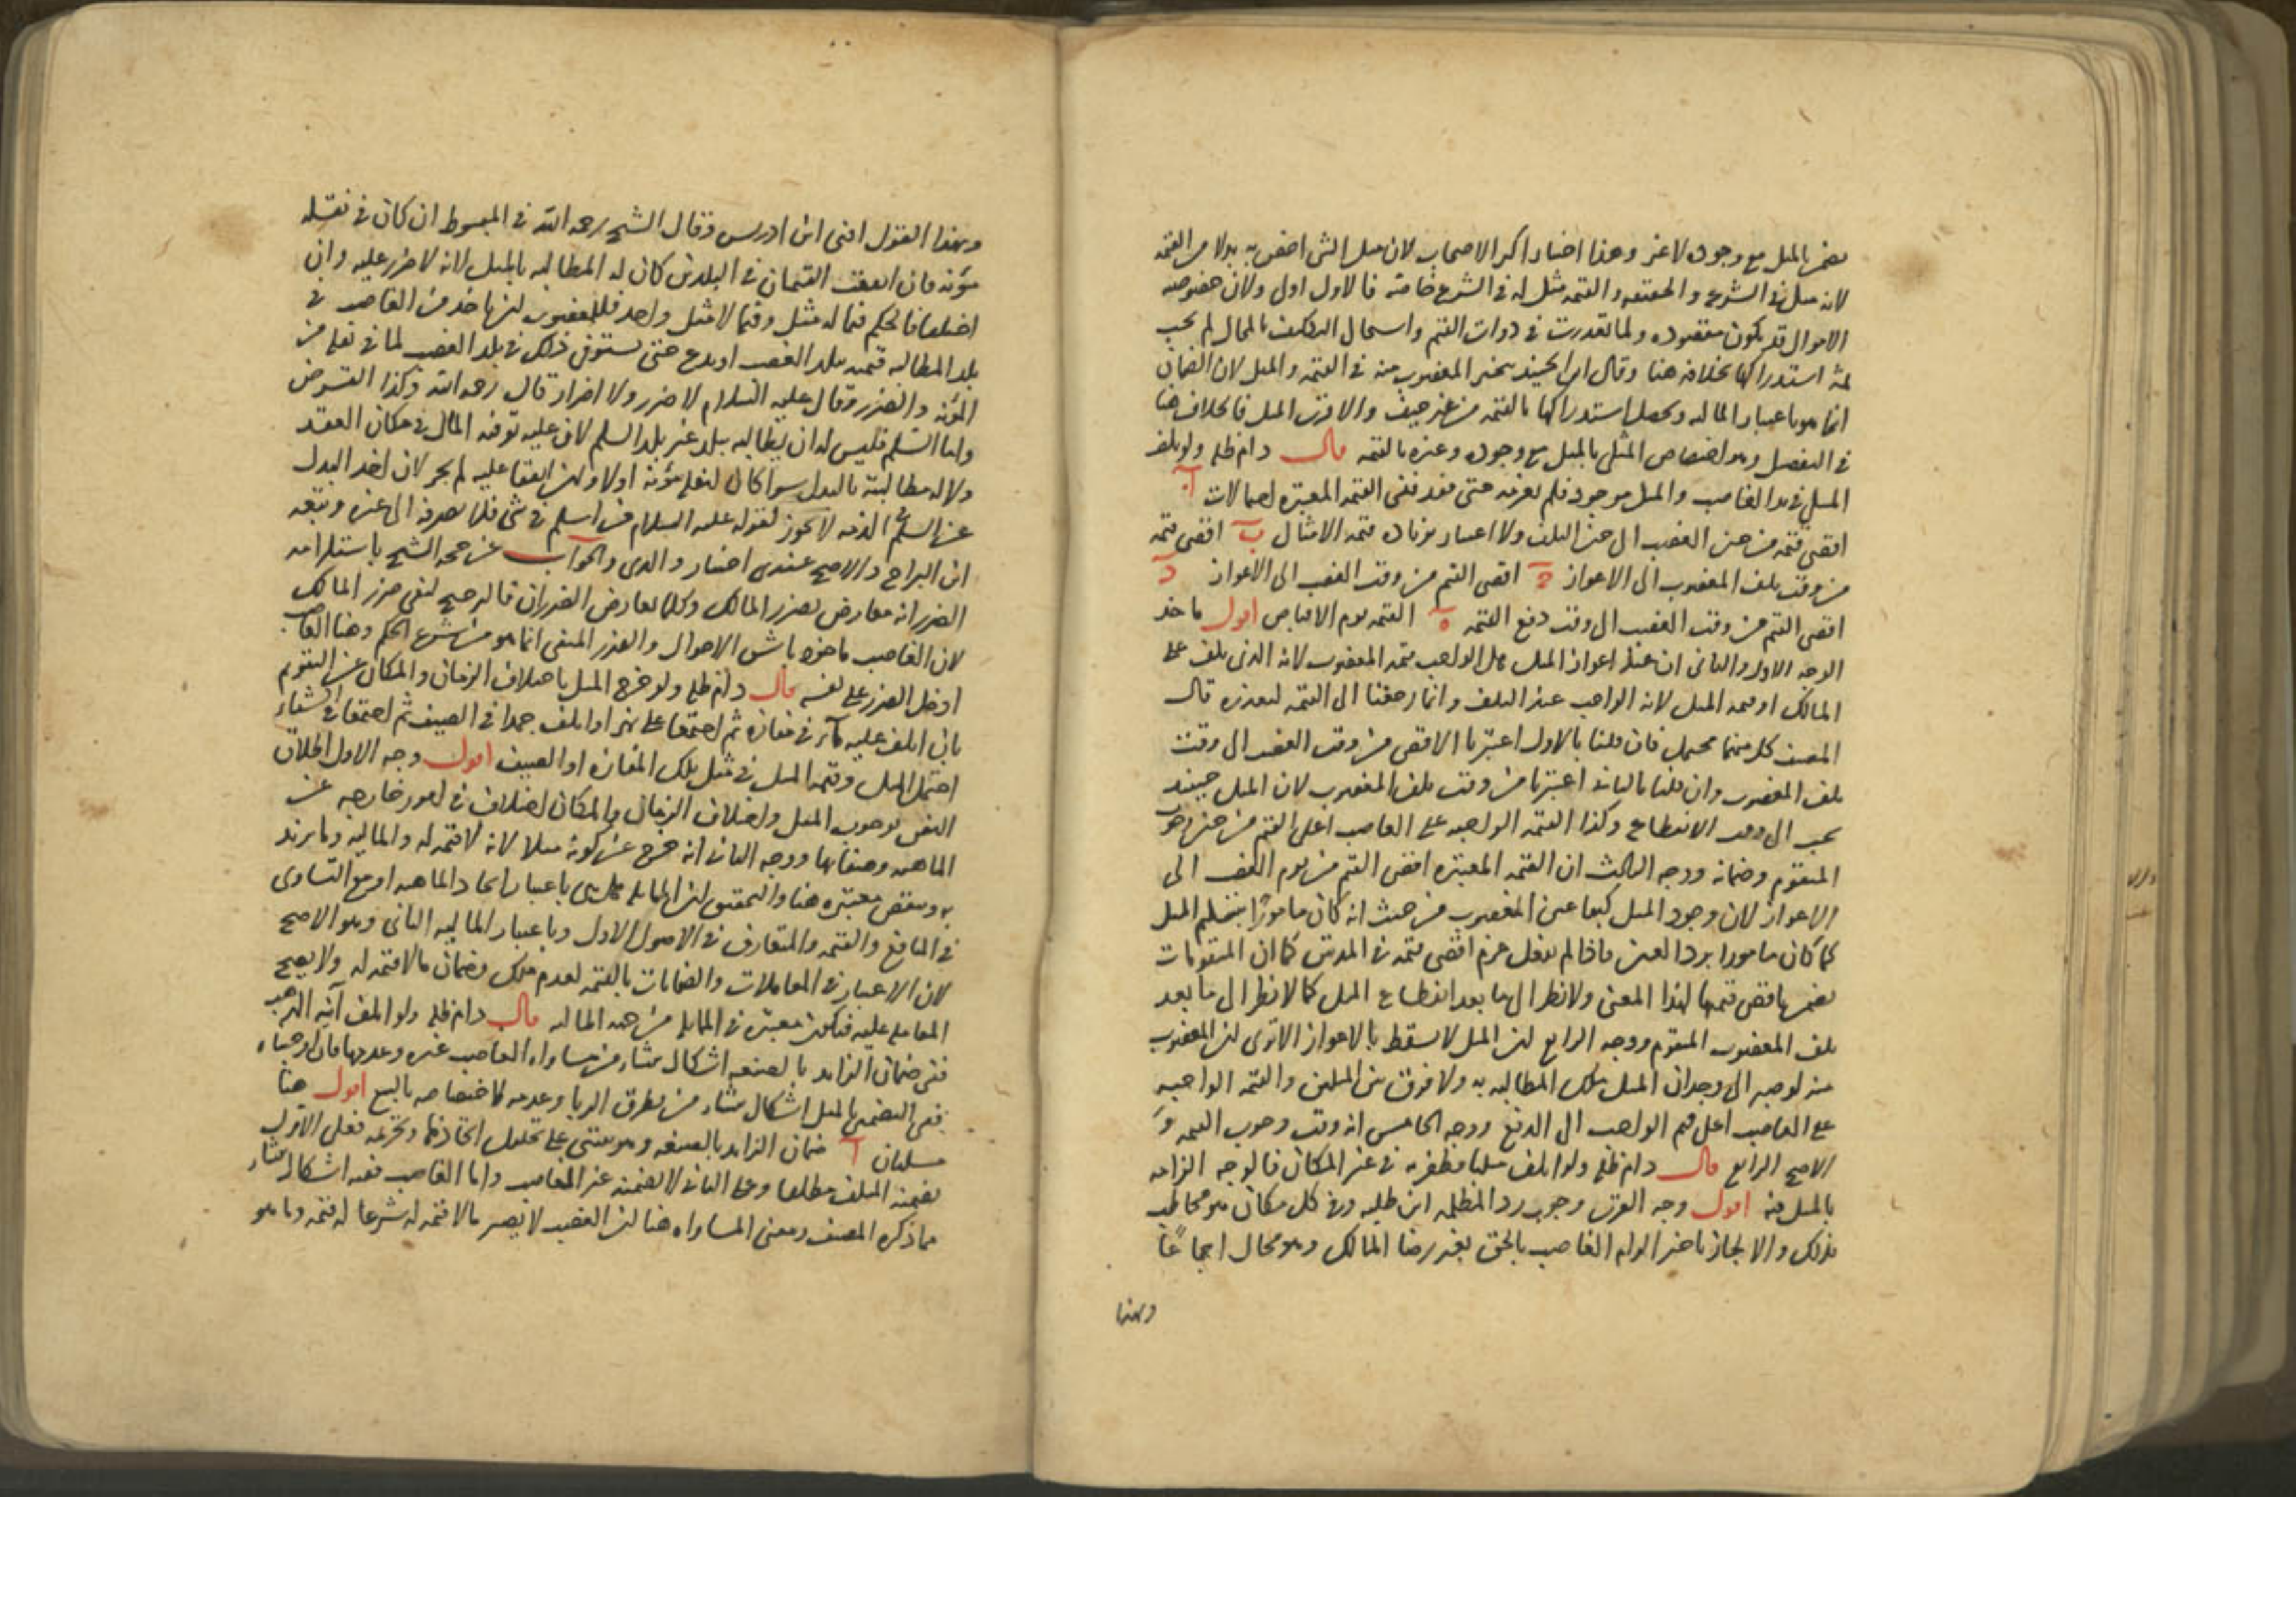 يضمن بالمثل مع وجوده لا غير وهذا اختيار اكثر الاصحاب لان مثل الشي اخص به بدلا من القيمه
لانه مثل في الشرع والحقيقه والقيمه مثل له في الشرع خاصة فالاول اولى ولان خصوصيه
الاموال قد يكون مقصوده ولما تعذرت في ذوات القيم واستحال التكليف بالمحال لم يجب
ثمة استدراكها بخلافه هنا وقال ابن الجنيد يتخير المغصوب منه في القيمه والمثل لان الضمان
انما هو باعتبار الماليه ويحصل استدراكها بالقيمه من غير حيف والاقرب المثل فالخلاف هنا
في التفصيل وهو اختصاص المثلي بالمثل مع وجوده وغيره بالقيمه قال دام ظله ولو تلف
المثلي في يد الغاصب والمثل موجود فلم يغرمه حتى فقد ففي القيمه المعتبره احتمالات آ
اقصى قيمته من حين الغصب الى حين التلف ولا اعتبار بزياده قيمه الامثال ب اقصى قيمه
من وقت تلف المغصوب الى الاعواز ج اقصى القيم من وقت الغصب الى الاعواز د
اقصى القيم من وقت الغصب الى وقت دفع القيمه ه القيمه يوم الاقباض اقول ماخذ
الوجه الاول والثاني ان عند اعواز المثل هل الواجب قيمه المغصوب لانه الذي تلف على
المالك او قيمه المثل لانه الواجب عند التلف وانما رجعنا الى القيمه لتعذره قال
المصنف كل منهما محتمل فان قلنا بالاول اعتبرنا الاقصى من وقت الغصب الى وقت
تلف المغصوب وان قلنا بالثاني اعتبرنا من وقت تلف المغصوب لان المثل حينئذ
يجب الى وقت الانقطاع وكذا القيمه الواجبه على الغاصب اعلى القيم من حين وجوب
المتقوم وضمانه ووجه الثالث ان القيمه المعتبره اقصى القيم من يوم الغصب الى
الاعواز لان وجود المثل كبقا عين المغصوب من حيث انه كان مامورا بتسليم المثل
كما كان مامورا برد العين فاذا لم يفعل غرم اقصى قيمه في المدتين كما ان المتقومات
يضمنها باقصى قيمها لهذا المعنى ولا نظر الى ما بعد انقطاع المثل كما لا نظر الى ما بعد
تلف المغصوب المتقوم ووجه الرابع ان المثل لا يسقط بالاعواز الا ترى ان المغصوب
منه لو صبر الى وجدان المثل ملك المطالبه به ولا فرق بين المثلين والقيمه الواجبه
على الغاصب اعلى قيم الواجب الى الدفع ووجه الخامس انه وقت وجوب القيمه و
الاصح الرابع قال دام ظله ولو اتلف مثليا فظفر به في غير المكان فالوجه الزامه
بالمثل فيه اقول وجه القرب وجوب رد المظلمه اين طلبه وفي كل مكان هو مخاطب
بذلك والا لجاز تاخير الزام الغاصب بالحق بغير رضا المالك وهو محال اجماعا
وبهذا
وبهذا القول افتى ابن ادريس وقال الشيخ رحمه الله في المبسوط ان كان في نقله
مؤنه فان اتفقت القيمتان في البلدين كان له المطالبه بالمثل لانه لا ضرر عليه وان
اختلفا فالحكم فيما له مثل وفيما لا مثل واحد فللمغصوب ان ياخذ من الغاصب في
بلد المطالبه قيمته ببلد الغصب او يدع حتى يستوفى ذلك في بلد الغصب لما في نقله من
المؤنه والضرر وقال عليه السلام لا ضرر ولا اضرار قال رحمه الله وكذا القرض
واما السلم فليس له ان يطالبه ببلد غير بلد السلم لان عليه توفيه المال في مكان العقد
ولا له مطالبته بالبدل سوا كان لنقله مؤنه اولا وان اتفقا عليه لم يجز لان اخذ البدل
عن السلم في الذمه لا يجوز لقوله عليه السلام من اسلم في شي فلا يصرفه الى غيره وتبعه
ابن البراج والاصح عندي اختيار والدي والجواب عن حجه الشيخ باستلزامه
الضرر انه معارض بضرر المالك وكلما تعارض الضرران فالترجيح لنفي ضرر المالك
لان الغاصب ماخوذ باشق الاحوال والضرر المنفي انما هو من شرع الحكم وهنا الغاصب
ادخل الضرر على نفسه قال دام ظله ولو خرج المثل باختلاف الزمان والمكان عن التقويم
بان اتلف عليه ماء في مفازه ثم اجتمعا على نهر او اتلف جمدا في الصيف ثم اجتمعا في الشتاء
احتمل المثل وقيمه المثل في مثل تلك المفازه او الصيف اقول وجه الاول اطلاق
النص بوجوب المثل واختلاف الزمان والمكان اختلاف في امور خارجه عن
الماهيه وصفاتها ووجه الثاني انه خرج عن كونه مثلا لانه لا قيمه له والماليه وما يزيد
به وينقص معتبره هنا والتحقيق ان المماثله هل هي باعتبار اتحاد الماهيه او مع التساوي
في المنافع والقيمه والمتعارف في الاصول الاول وباعتبار الماليه الثاني وهو الاصح
لان الاعتبار في المعاملات والضمانات بالقيمه لعدم ملك وضمان ما لا قيمه له ولا يصح
المعامله عليه فتكون معتبره في المماثله من جهه الماليه قال دام ظله ولو اتلف آنيه الذهب
ففي ضمان الزايد بالصنعه اشكال ينشاء من مساواه الغاصب غيره وعدمها فان اوجبناه
ففي التضمين بالمثل اشكال ينشاء من تطرق الربا وعدمه لاختصاصه بالبيع اقول هنا
مسلتان آ ضمان الزايد بالصنعه وهو مبتني على تحليل اتخاذها وتحريمه فعلى الاول
يضمنه المتلف مطلقا وعلى الثاني لا يضمنه غير الغاصب واما الغاصب ففيه اشكال ينشاء
مما ذكره المصنف ومعنى المساواه هنا ان الغصب لا يصير ما لا قيمه له شرعا له قيمه وما هو